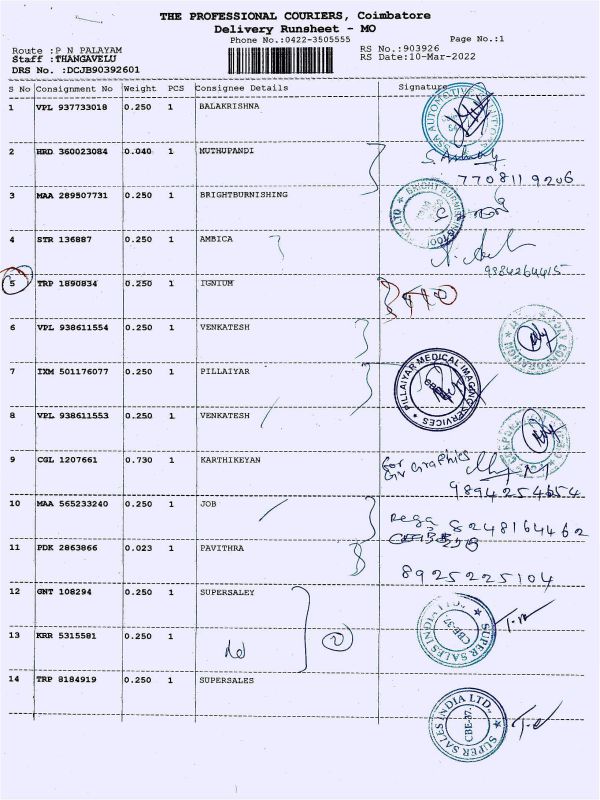 THE PROFESSIONAL COURIERS, Coimbatore
Delivery Runsheet - MO
Phone No.:0422-3505555
Page No.:1
Route :P N PALAYAM
RS No.:903926
Staff :THANGAVELU
RS Date:10-Mar-2022
DRS No. :DCJB90392601
S No Consignment No Weight PCS Consignee Details Signature
1 VPL 937733018 0.250 1 BALAKRISHNA
2 HRD 360023084 0.040 1 MUTHUPANDI
7708119206
3 MAA 289507731 0.250 1 BRIGHTBURNISHING
4 STR 136887 0.250 1 AMBICA
9884264415
5 TRP 1890834 0.250 1 IGNIUM
6 VPL 938611554 0.250 1 VENKATESH
7 IXM 501176077 0.250 1 PILLAIYAR
PILLAIYAR MEDICAL IMAGING SERVICES
8 VPL 938611553 0.250 1 VENKATESH
9 CGL 1207661 0.730 1 KARTHIKEYAN
for
Graphics
9894254654
10 MAA 565233240 0.250 1 JOB
8248164462
11 PDK 2863866 0.023 1 PAVITHRA
8925225104
12 GNT 108294 0.250 1 SUPERSALEY
SUPER SALES INDIA LTD.
CBE-37
13 KRR 5315581 0.250 1
2
14 TRP 8184919 0.250 1 SUPERSALES
SUPER SALES INDIA LTD.
CBE-37.